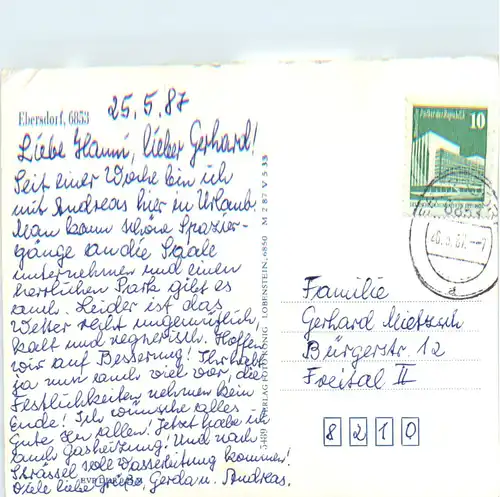 Ebersdorf, 6853
25.5.87
Liebe Hanni, lieber Gerhard!
Seit einer Woche bin ich
mit Andreas hier in Urlaub.
Man kann schöne Spazier-
gänge an die Saale
unternehmen und einen
herrlichen Park gibt es
auch. Leider ist das
Wetter recht ungemütlich,
kalt und regnerisch. Hoffen
wir auf Besserung! Ihr habt
ja nun auch viel vor, die
Festlichkeiten nehmen kein
Ende! Ich wünsche alles
Gute Euch allen! Jetzt habe ich
auch Gasheizung! Und nach
soll Wasserleitung kommen!
liebe Grüße, Gerda u. Andreas.
M 2 87 V 5 33
VERLAG FOTO-KÖNIG LOBENSTEIN, 6850
10
6853
26.5.87-7
a
Familie
Gerhard Mietzsch
Bürgerstr. 12
Freital II
8210